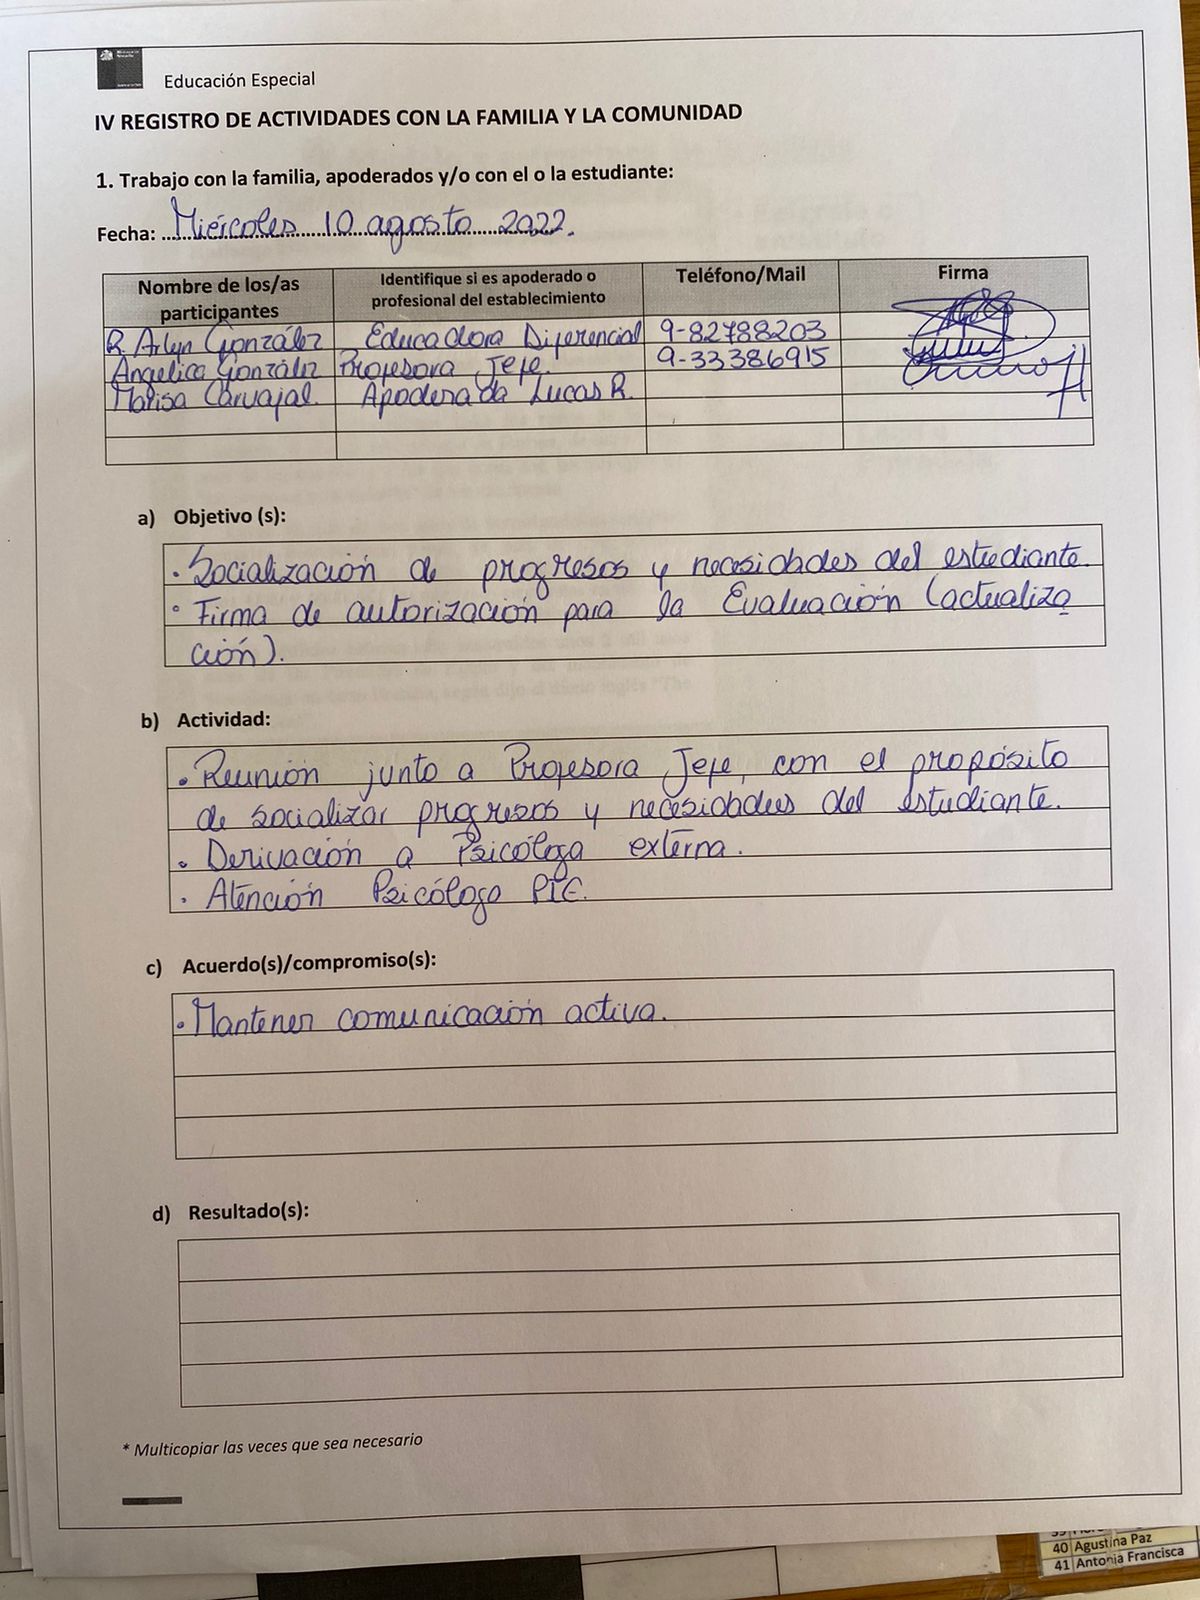 Educación Especial
IV REGISTRO DE ACTIVIDADES CON LA FAMILIA Y LA COMUNIDAD
1. Trabajo con la familia, apoderados y/o con el o la estudiante:
Fecha: Miércoles 10 agosto 2022.
Nombre de los/as participantes | Identifique si es apoderado o profesional del establecimiento | Teléfono/Mail | Firma
R. Arlyn González | Educadora Diferencial | 9-82788203
Angelica González | Profesora Jefe. | 9-33386915
Marisa Carvajal. | Apoderada Lucas R.
a) Objetivo (s):
· Socialización de progresos y necesidades del estudiante.
· Firma de autorización para la Evaluación (actualiza
ción).
b) Actividad:
· Reunión junto a Profesora Jefe, con el propósito
de socializar progresos y necesidades del estudiante.
· Derivación a Psicóloga externa.
· Atención Psicólogo PIE.
c) Acuerdo(s)/compromiso(s):
· Mantener comunicación activa.
d) Resultado(s):
* Multicopiar las veces que sea necesario
40 Agustina Paz
41 Antonia Francisca